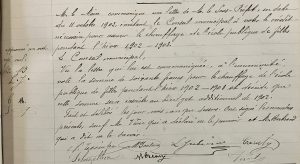 M. le Maire communique une lettre de M. le Sous-Préfet, en date
du 11 octobre 1902, invitant le Conseil municipal à voter le crédit
nécessaire pour assurer le chauffage de l'école publique de filles
pendant l'hiver 1902-1903.
Le Conseil municipal,
Vu la lettre qui lui est communiquée, à l'unanimité
vote la somme de soixante francs pour le chauffage de l'école
publique de filles pendant l'hiver 1902-1903 et décide que
cette somme sera inscrite au budget additionnel de 1902.
Fait et délibéré les jour, mois et an que dessus. Ont signé les membres
présents, sauf M. qui a déclaré ne le pouvoir et M. Bertrand
qui a dit ne le savoir.